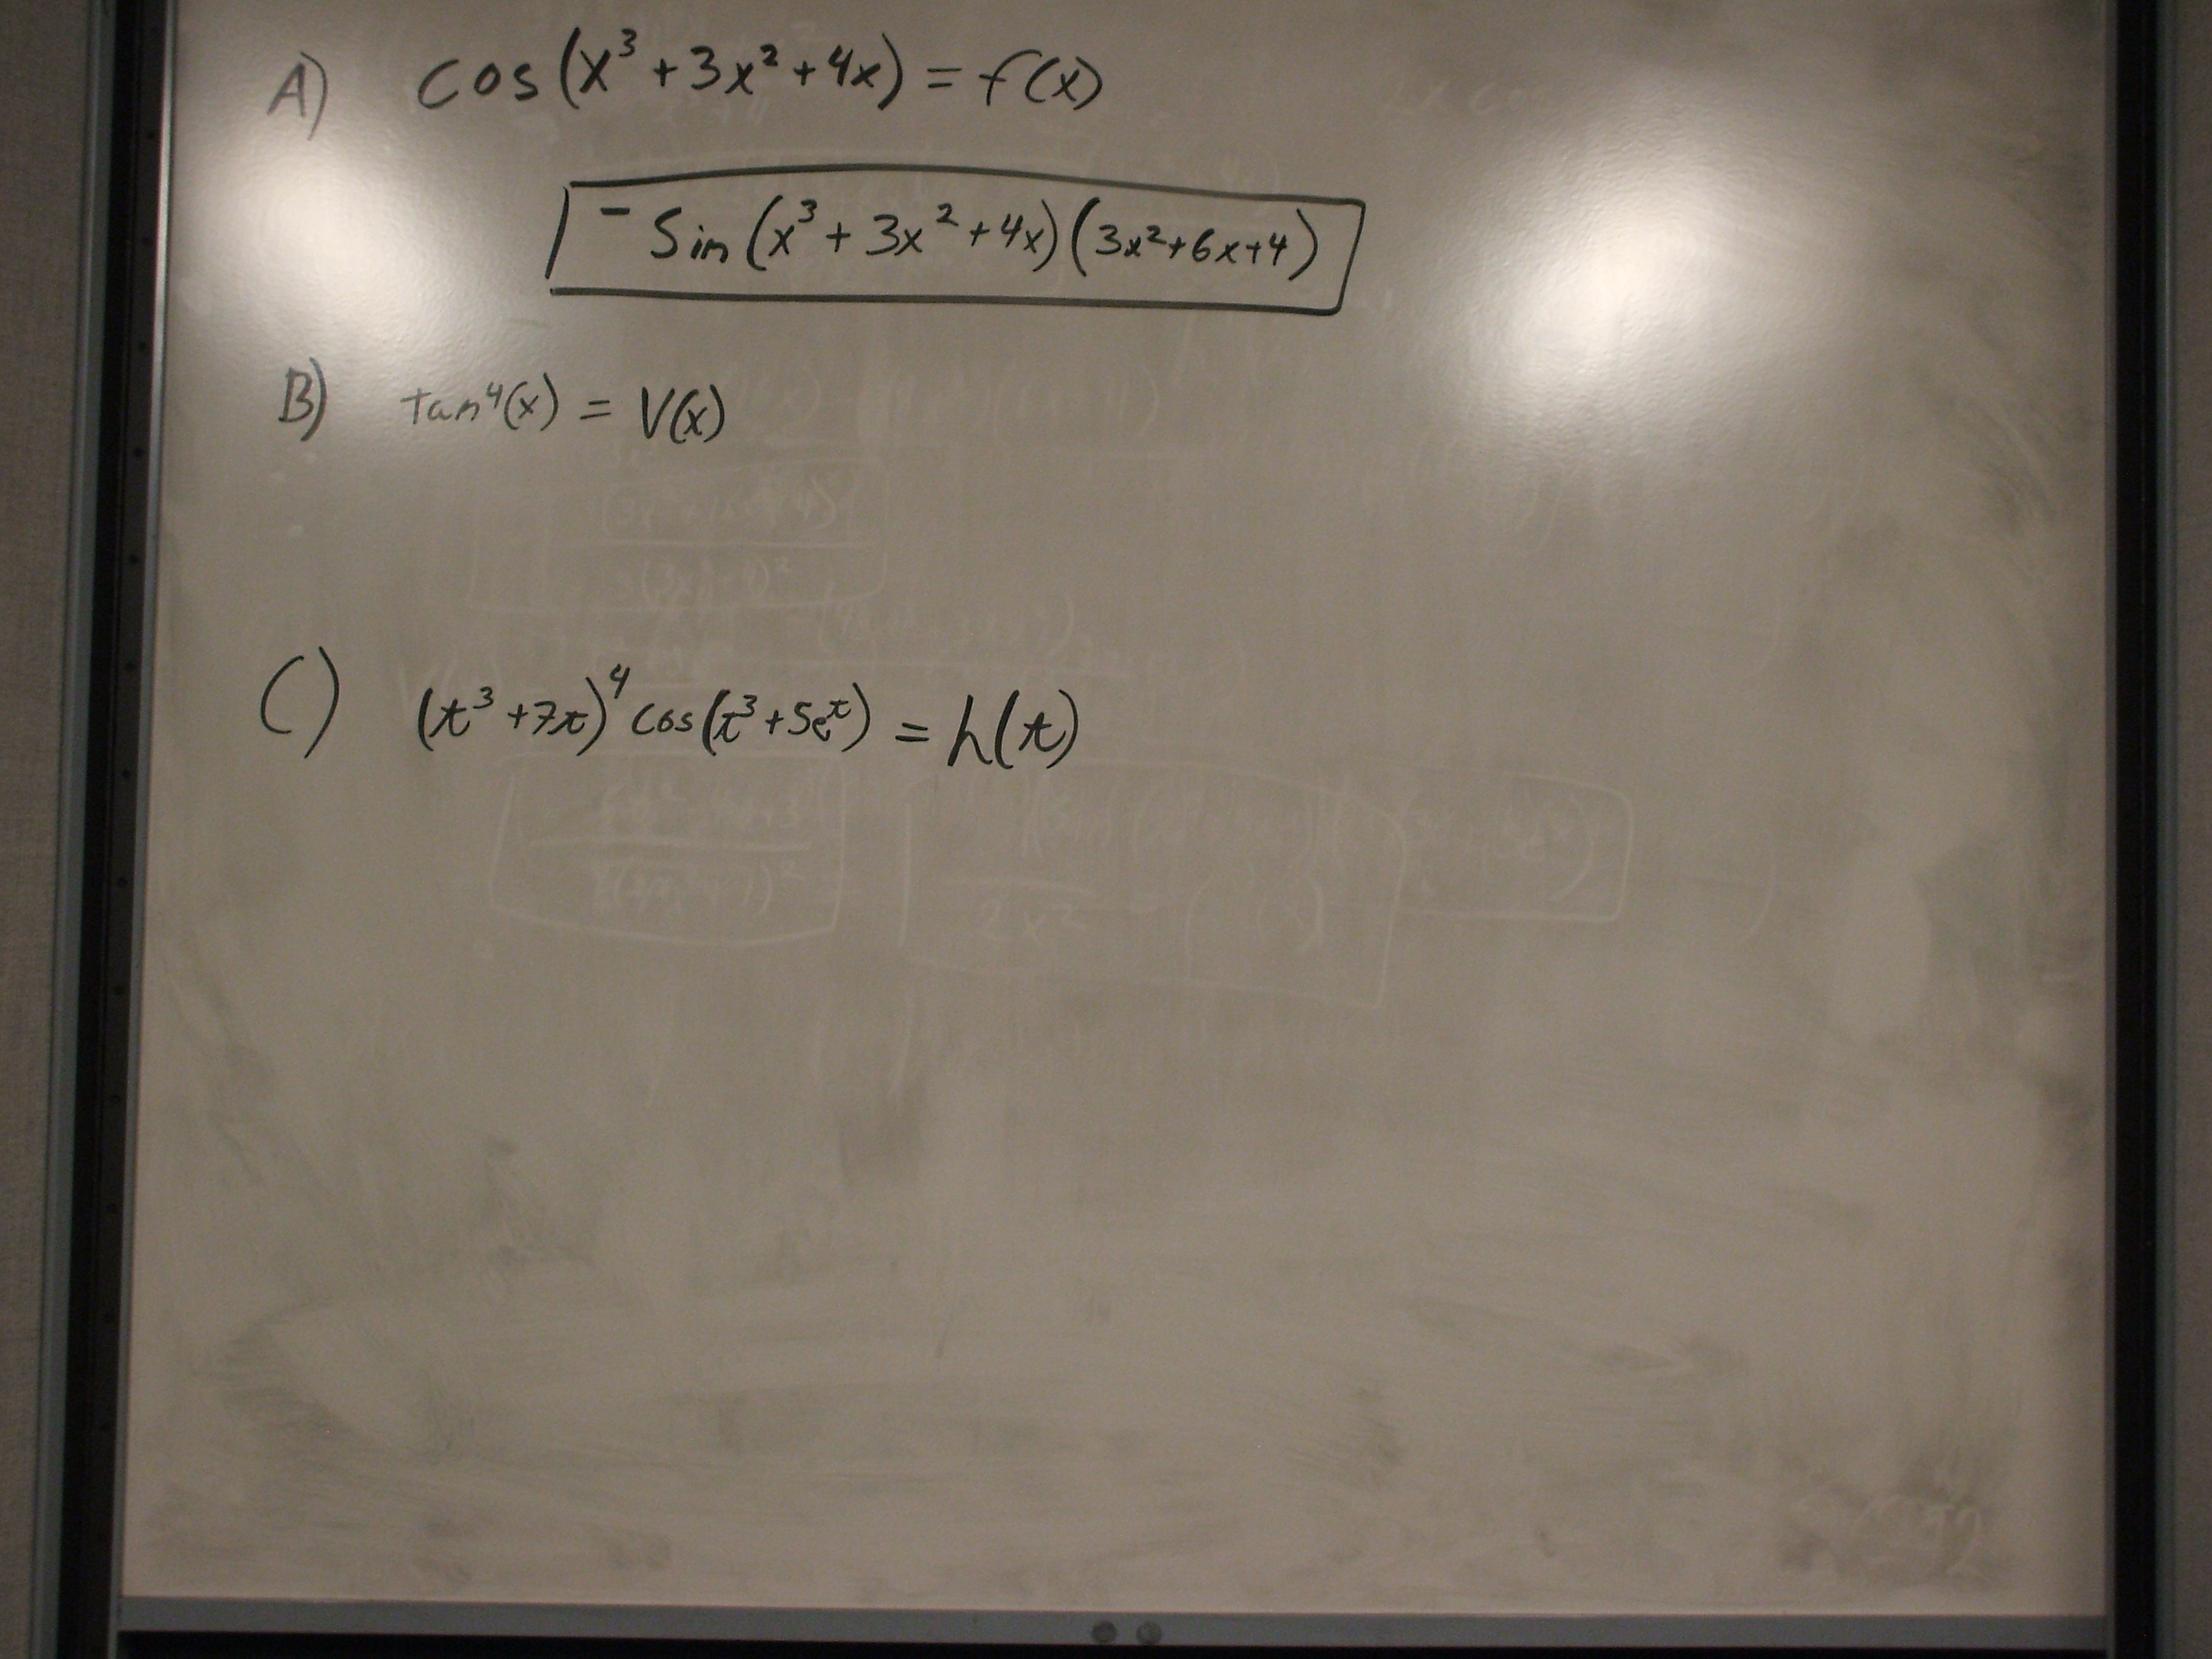 A) cos(x³+3x²+4x) = f(x)
-Sin(x³+3x²+4x)(3x²+6x+4)
B) tan⁴(x) = V(x)
C) (t³+7t)⁴cos(t³+5eᵗ) = h(t)